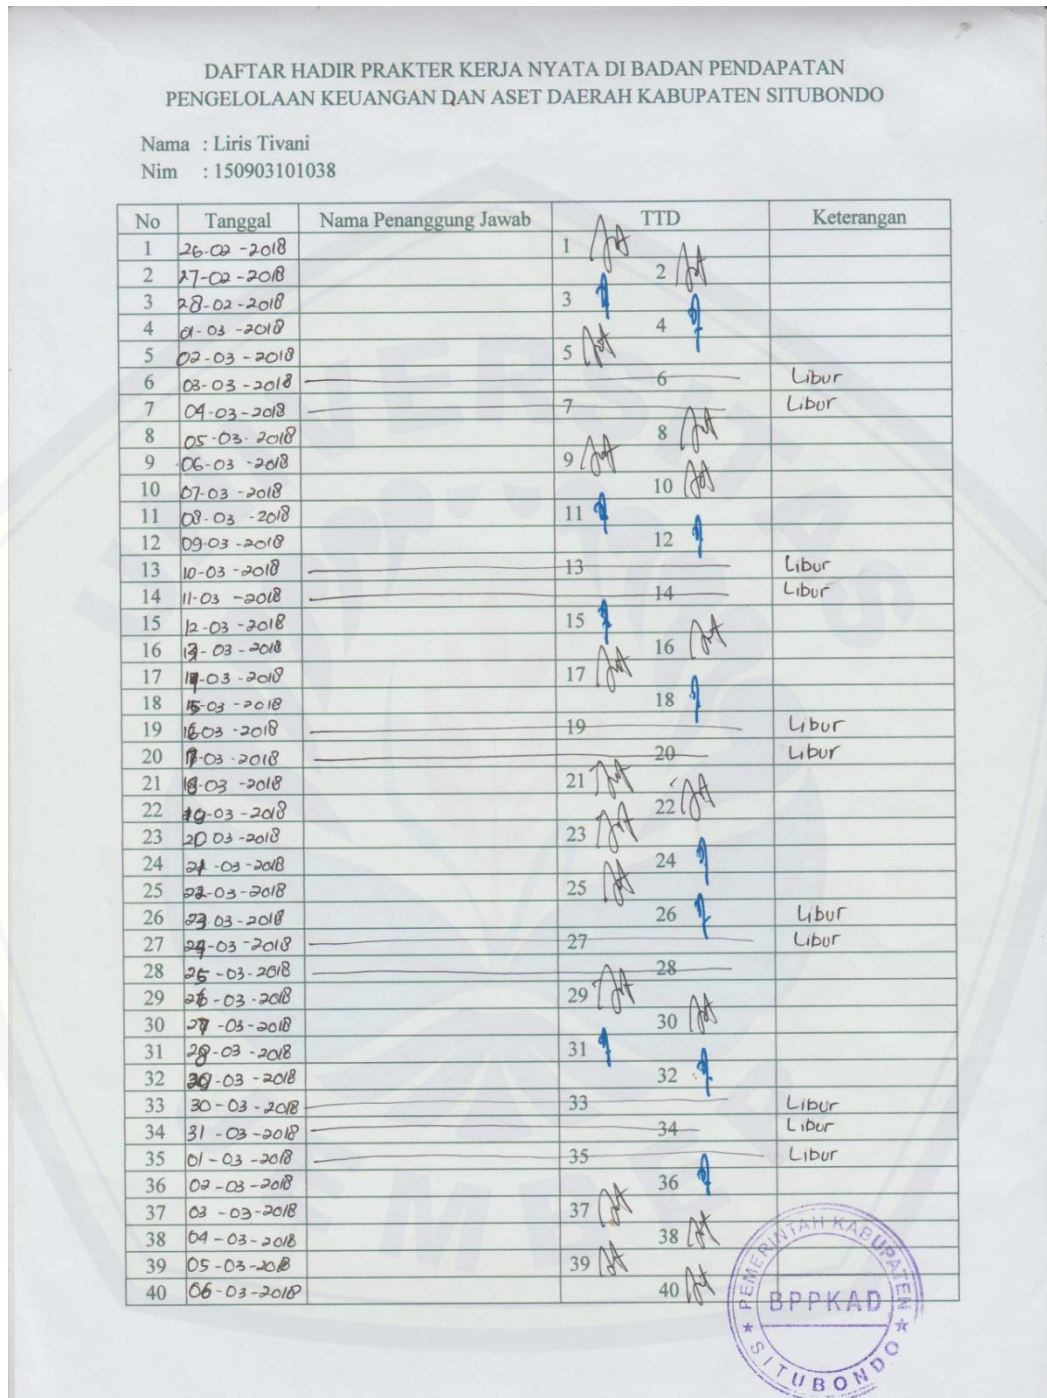 DAFTAR HADIR PRAKTER KERJA NYATA DI BADAN PENDAPATAN
PENGELOLAAN KEUANGAN DAN ASET DAERAH KABUPATEN SITUBONDO
Nama : Liris Tivani
Nim : 150903101038
No Tanggal Nama Penanggung Jawab TTD Keterangan
1 26-02-2018 1
2 27-02-2018 2
3 28-02-2018 3
4 01-03-2018 4
5 02-03-2018 5
6 03-03-2018 6 Libur
7 04-03-2018 7 Libur
8 05-03-2018 8
9 06-03-2018 9
10 07-03-2018 10
11 08-03-2018 11
12 09-03-2018 12
13 10-03-2018 13 Libur
14 11-03-2018 14 Libur
15 12-03-2018 15
16 13-03-2018 16
17 14-03-2018 17
18 15-03-2018 18
19 16-03-2018 19 Libur
20 17-03-2018 20 Libur
21 18-03-2018 21
22 19-03-2018 22
23 20 03-2018 23
24 21-03-2018 24
25 22-03-2018 25
26 23 03-2018 26 Libur
27 24-03-2018 27 Libur
28 25-03-2018 28
29 26-03-2018 29
30 27-03-2018 30
31 28-03-2018 31
32 29-03-2018 32
33 30-03-2018 33 Libur
34 31-03-2018 34 Libur
35 01-03-2018 35 Libur
36 02-03-2018 36
37 03-03-2018 37
38 04-03-2018 38
39 05-03-2018 39
40 06-03-2018 40
PEMERINTAH KABUPATEN
BPPKAD
SITUBONDO
UNIVERSITAS
JEMBER